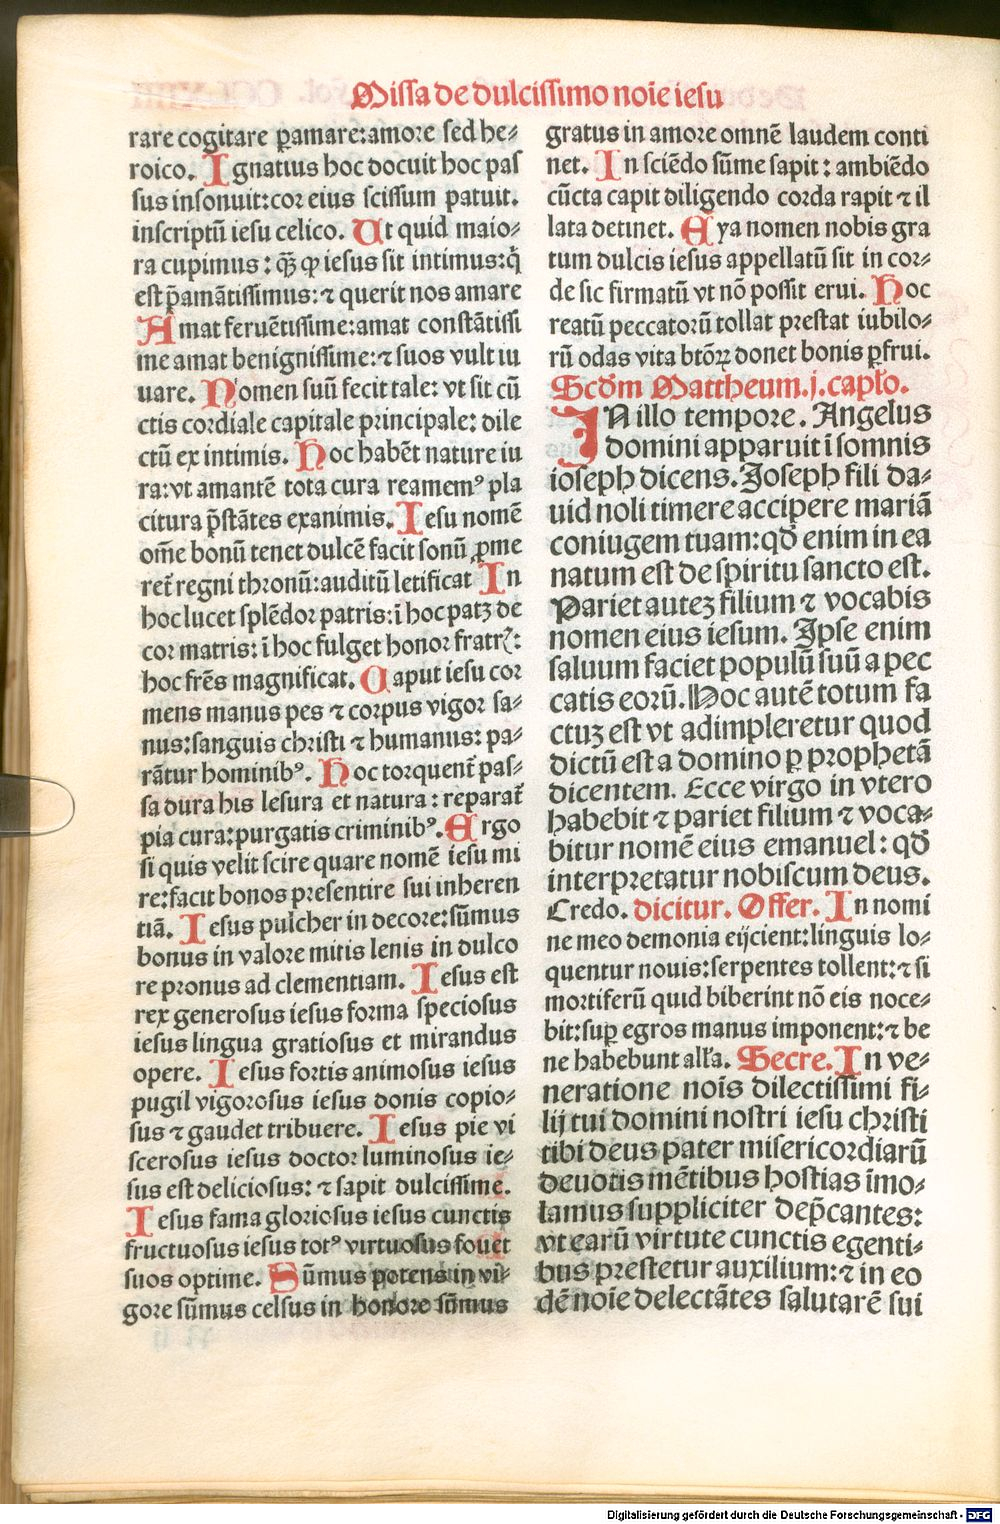 Missa de dulcissimo noīe iesu
rare cogitare ꝑamare: amore sed he⸗
roico. Ignatius hoc docuit hoc pas
sus insonuit: cor eius scissum patuit.
inscriptū iesu celico. Ut quid maio⸗
ra cupimus: qȝ̄ ꝙ iesus sit intimus: q̇
est p̄amātissimus: ⁊ querit nos amare
Amat feruētissime: amat constātissi
me amat benignissime: ⁊ suos vult iu
uare. Nomen suū fecit tale: vt sit cū
ctis cordiale capitale principale: dile
ctū ex intimis. Hoc habēt nature iu
ra: vt amantē tota cura reamemꝰ pla
citura p̄stātes exanimis. Iesu nomē
om̄e bonū tenet dulcē facit sonū ꝓme
ret̄ regni thronū: auditū letificat In
hoc lucet splēdor patris: ī hoc patȝ de
cor matris: ī hoc fulget honor fratrꝭ:
hoc frēs magnificat. Caput iesu cor
mens manus pes ⁊ corpus vigor sa⸗
nus: sanguis christi ⁊ humanus: pa⸗
rātur hominibꝰ. Hoc torquent̄ pas⸗
sa dura his lesura et natura: reparat̄
pia cura: purgatis criminibꝰ. Ergo
si quis velit scire quare nomē iesu mi
re: facit bonos presentire sui inheren
tiā. Iesus pulcher in decore: sūmus
bonus in valore mitis lenis in dulco
re pronus ad clementiam. Iesus est
rex generosus iesus forma speciosus
iesus lingua gratiosus et mirandus
opere. Iesus fortis animosus iesus
pugil vigorosus iesus donis copio⸗
sus ⁊ gaudet tribuere. Iesus pie vi
scerosus iesus doctor luminosus ie⸗
sus est deliciosus: ⁊ sapit dulcissime.
Iesus fama gloriosus iesus cunctis
fructuosus iesus totꝰ virtuosus fouet
suos optime. Sūmus potens in vi⸗
gore sūmus celsus in honore sūmus
gratus in amore omnē laudem conti
net. In sciēdo sūme sapit: ambiēdo
cūcta capit diligendo corda rapit ⁊ il
lata detinet. Eya nomen nobis gra
tum dulcis iesus appellatū sit in cor⸗
de sic firmatū vt nō possit erui. Hoc
reatū peccatorū tollat prestat iubilo⸗
rū odas vita btōꝝ donet bonis ꝑfrui.
Scḋm Mattheum. j. capło.
IN illo tempore. Angelus
domini apparuit ī somnis
ioseph dicens. Joseph fili da⸗
uid noli timere accipere mariā
coniugem tuam: qḋ enim in ea
natum est de spiritu sancto est.
Pariet auteȝ filium ⁊ vocabis
nomen eius iesum. Ipse enim
saluum faciet populū suū a pec
catis eorū. Hoc autē totum fa
ctuȝ est vt adimpleretur quod
dictū est a domino ꝑ prophetā
dicentem. Ecce virgo in vtero
habebit ⁊ pariet filium ⁊ voca⸗
bitur nomē eius emanuel: qḋ
interpretatur nobiscum deus.
Credo. dicitur. Offer. In nomi
ne meo demonia eijcient: linguis lo⸗
quentur nouis: serpentes tollent: ⁊ si
mortiferū quid biberint nō eis noce⸗
bit: suꝑ egros manus imponent: ⁊ be
ne habebunt alła. Secre. In ve⸗
neratione noīs dilectissimi fi⸗
lij tui domini nostri iesu christi
tibi deus pater misericordiarū
deuotis mētibus hostias imo⸗
lamus suppliciter dep̄cantes:
vt earū virtute cunctis egenti⸗
bus prestetur auxilium: ⁊ in eo
dē noīe delectātes salutarē sui
Digitalisierung gefördert durch die Deutsche Forschungsgemeinschaft - DFG